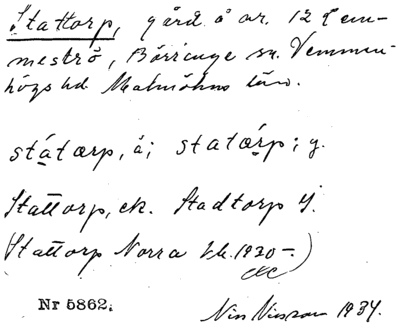 Stattorp, gård å nr. 12 Lem-
meströ, Börringe sn. Vemmen-
högs hd. Malmöhus län.
státərp, ä; statǿrp; y.
Stattorp, ek. Stadtorp J.
(Stattorp Norra Jb. 1920–)
Nr 5862.
Nils Nilsson 1934.